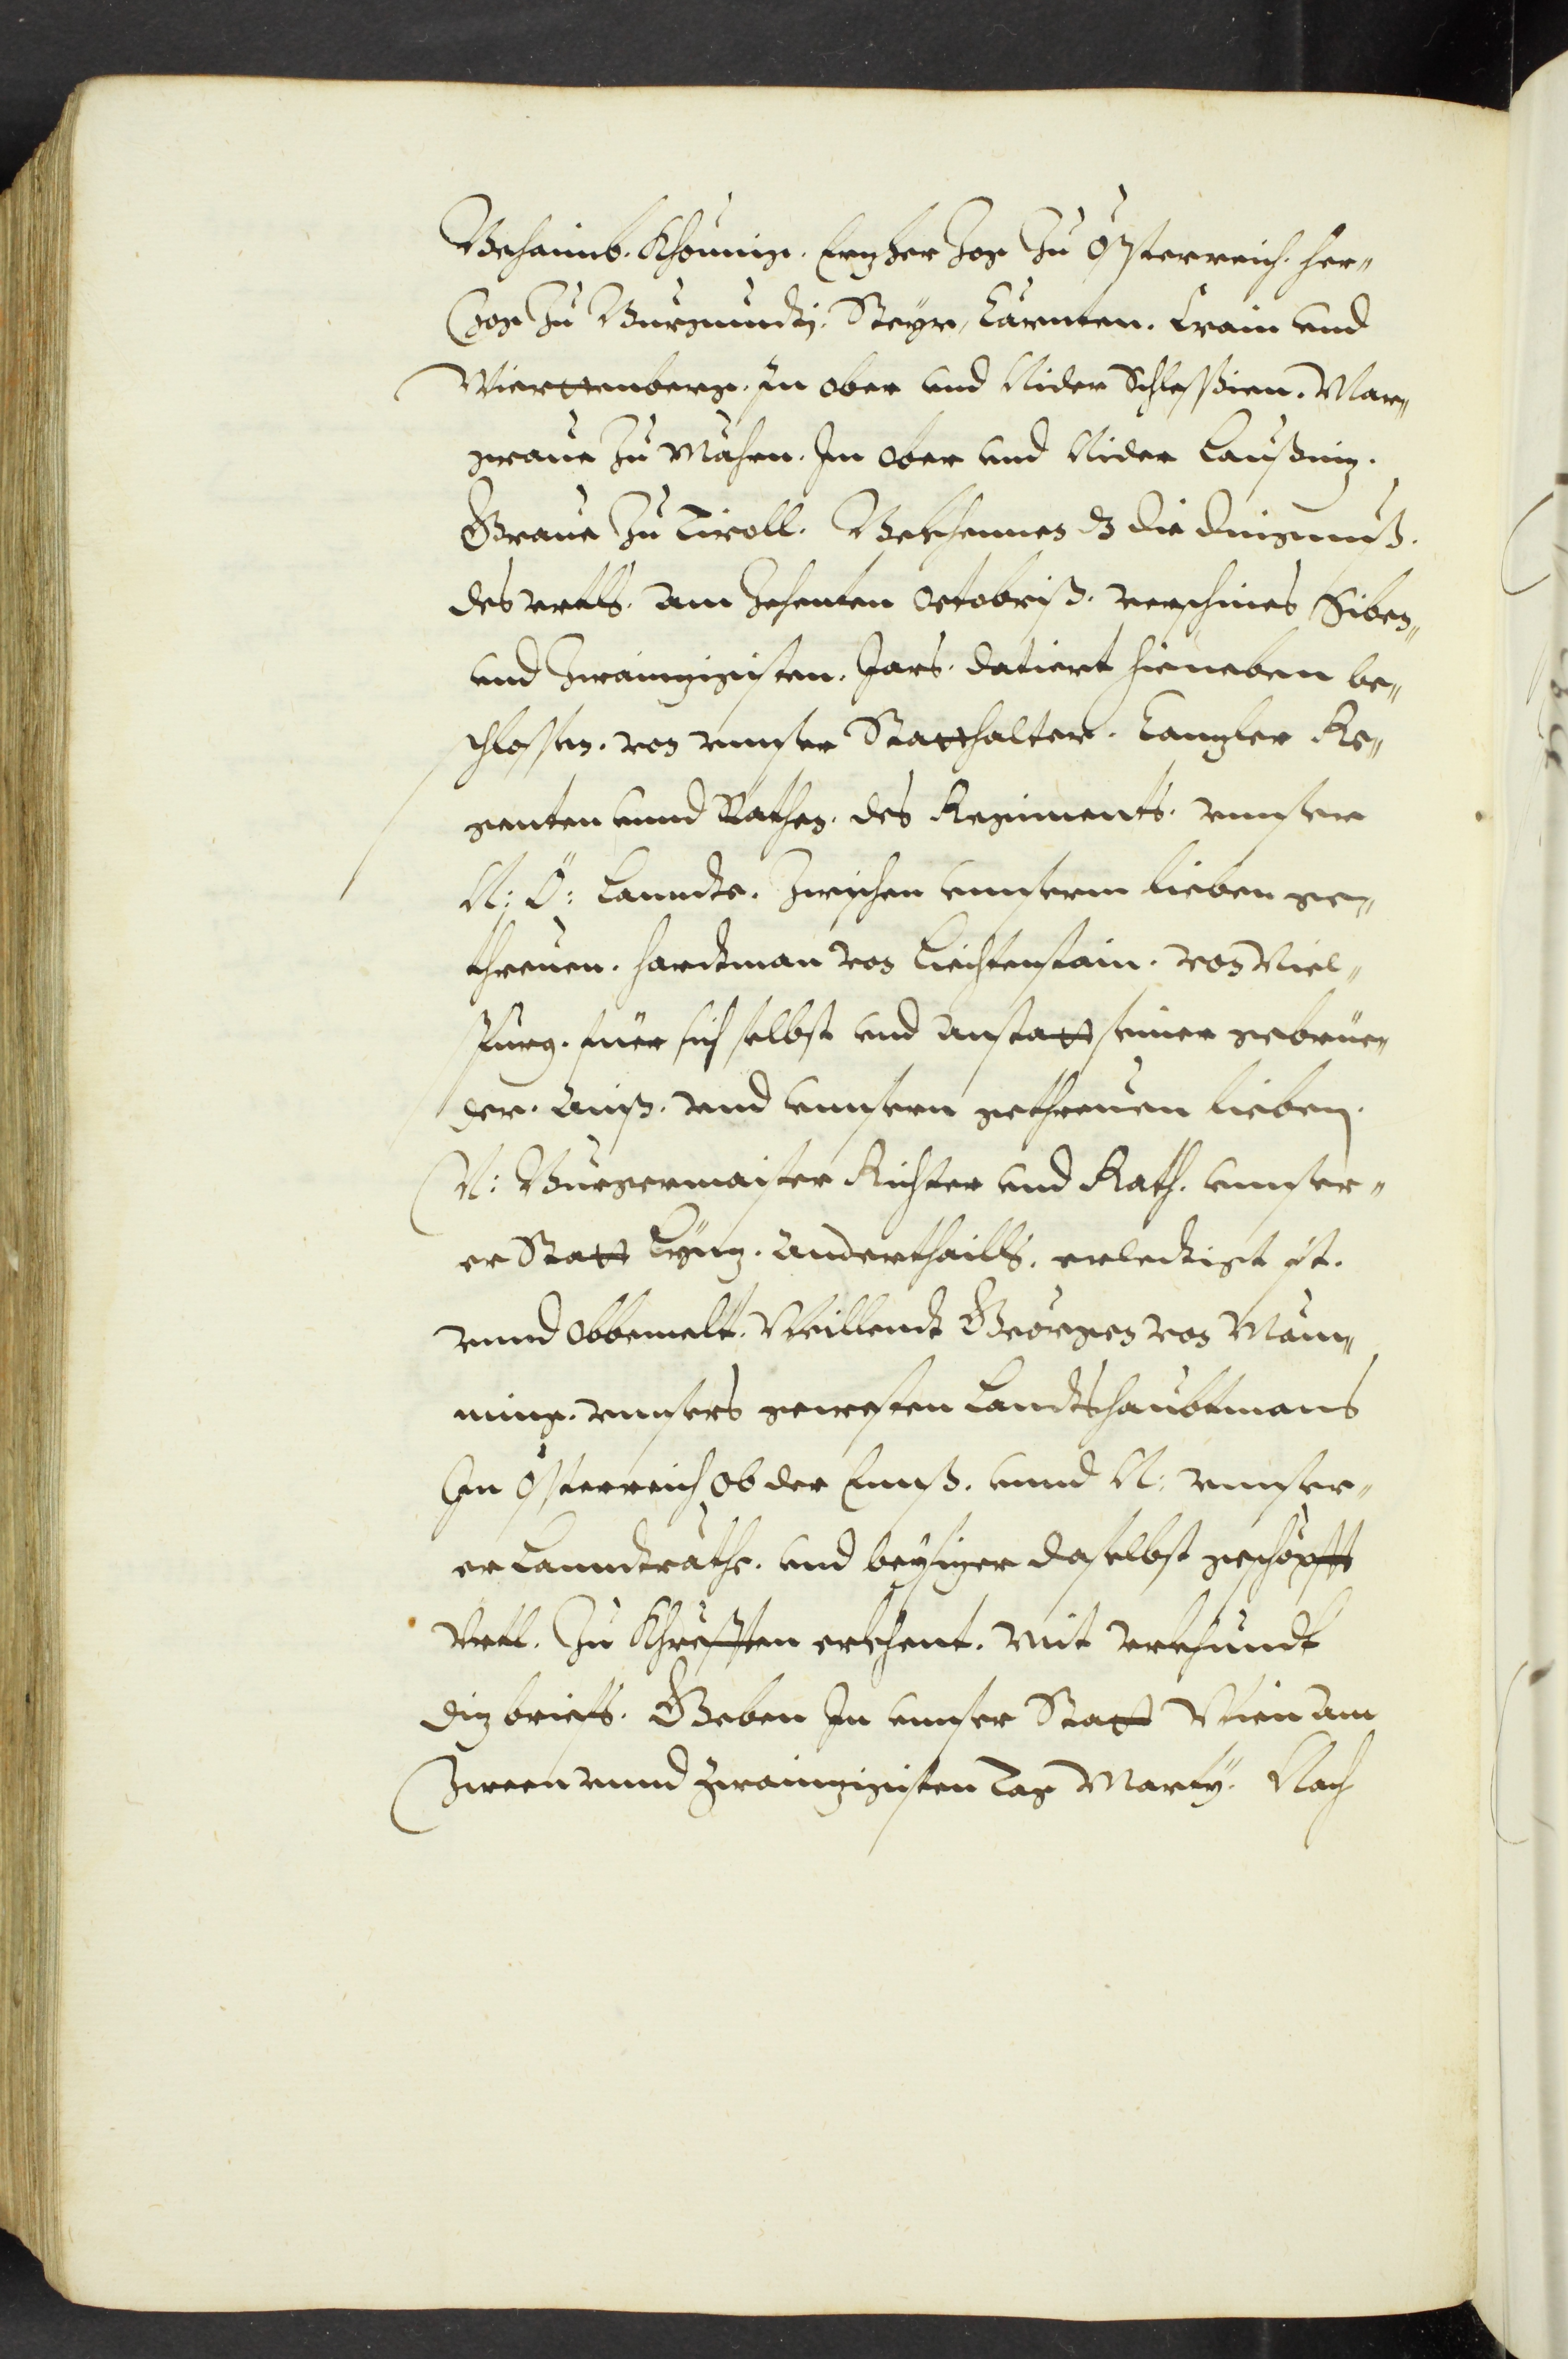 Behaimb. Khönnig. Erzherzog Zu Ößterreich. Her„
zog Zu Burgundtj. Steyr, Cärnten. Crain und
Wierttenberg. In ober und Nider Schleßien. Mar„
grave Zu Mährn. Im Ober und Nider Laußniz.
Grave Zu Tiroll. Bekhennen dz die dingnuß.
des urtls. am Zehenten Octobriß. verschines Siben„
und Zwainzigisten. Jars. datiert hieneben be„
schlossen. von unnser Statthalter. Canzler Re„
genten unnd Räthen. des Regiments. unnserer
N: Ö: Lanndte. Zwischen unnserm lieben ge„
threuen. Hardtman von Liechtenstain. von Niel„
spurg. für sich selbst und anstatt seiner gebrüe„
der. ains. und unnsern gethreuen lieben.
N: Burgermaister Richter und Rath. unnser„
er Statt Lynz. anderthaills. erledigt ist.
unnd obbemelt. Weillendt Georgen von Mäm„
ming. unnsers gewesten Landtshaubtmans
In Össterreich ob der Ennß. unnd N: unnser„
er Lanndträthe. und beysizer daselbst geschöpfft
Urtl. Zu Khrefften erkhent. mit urkhundt
diz brieffs. Geben In unnser Statt Wien am
Zween unnd zwainzigisten Tag Marty. Nach